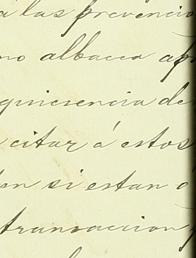 á las prevencio
no albacea ap
quiescencia de
citar á estos
en si estan d
transaccion y